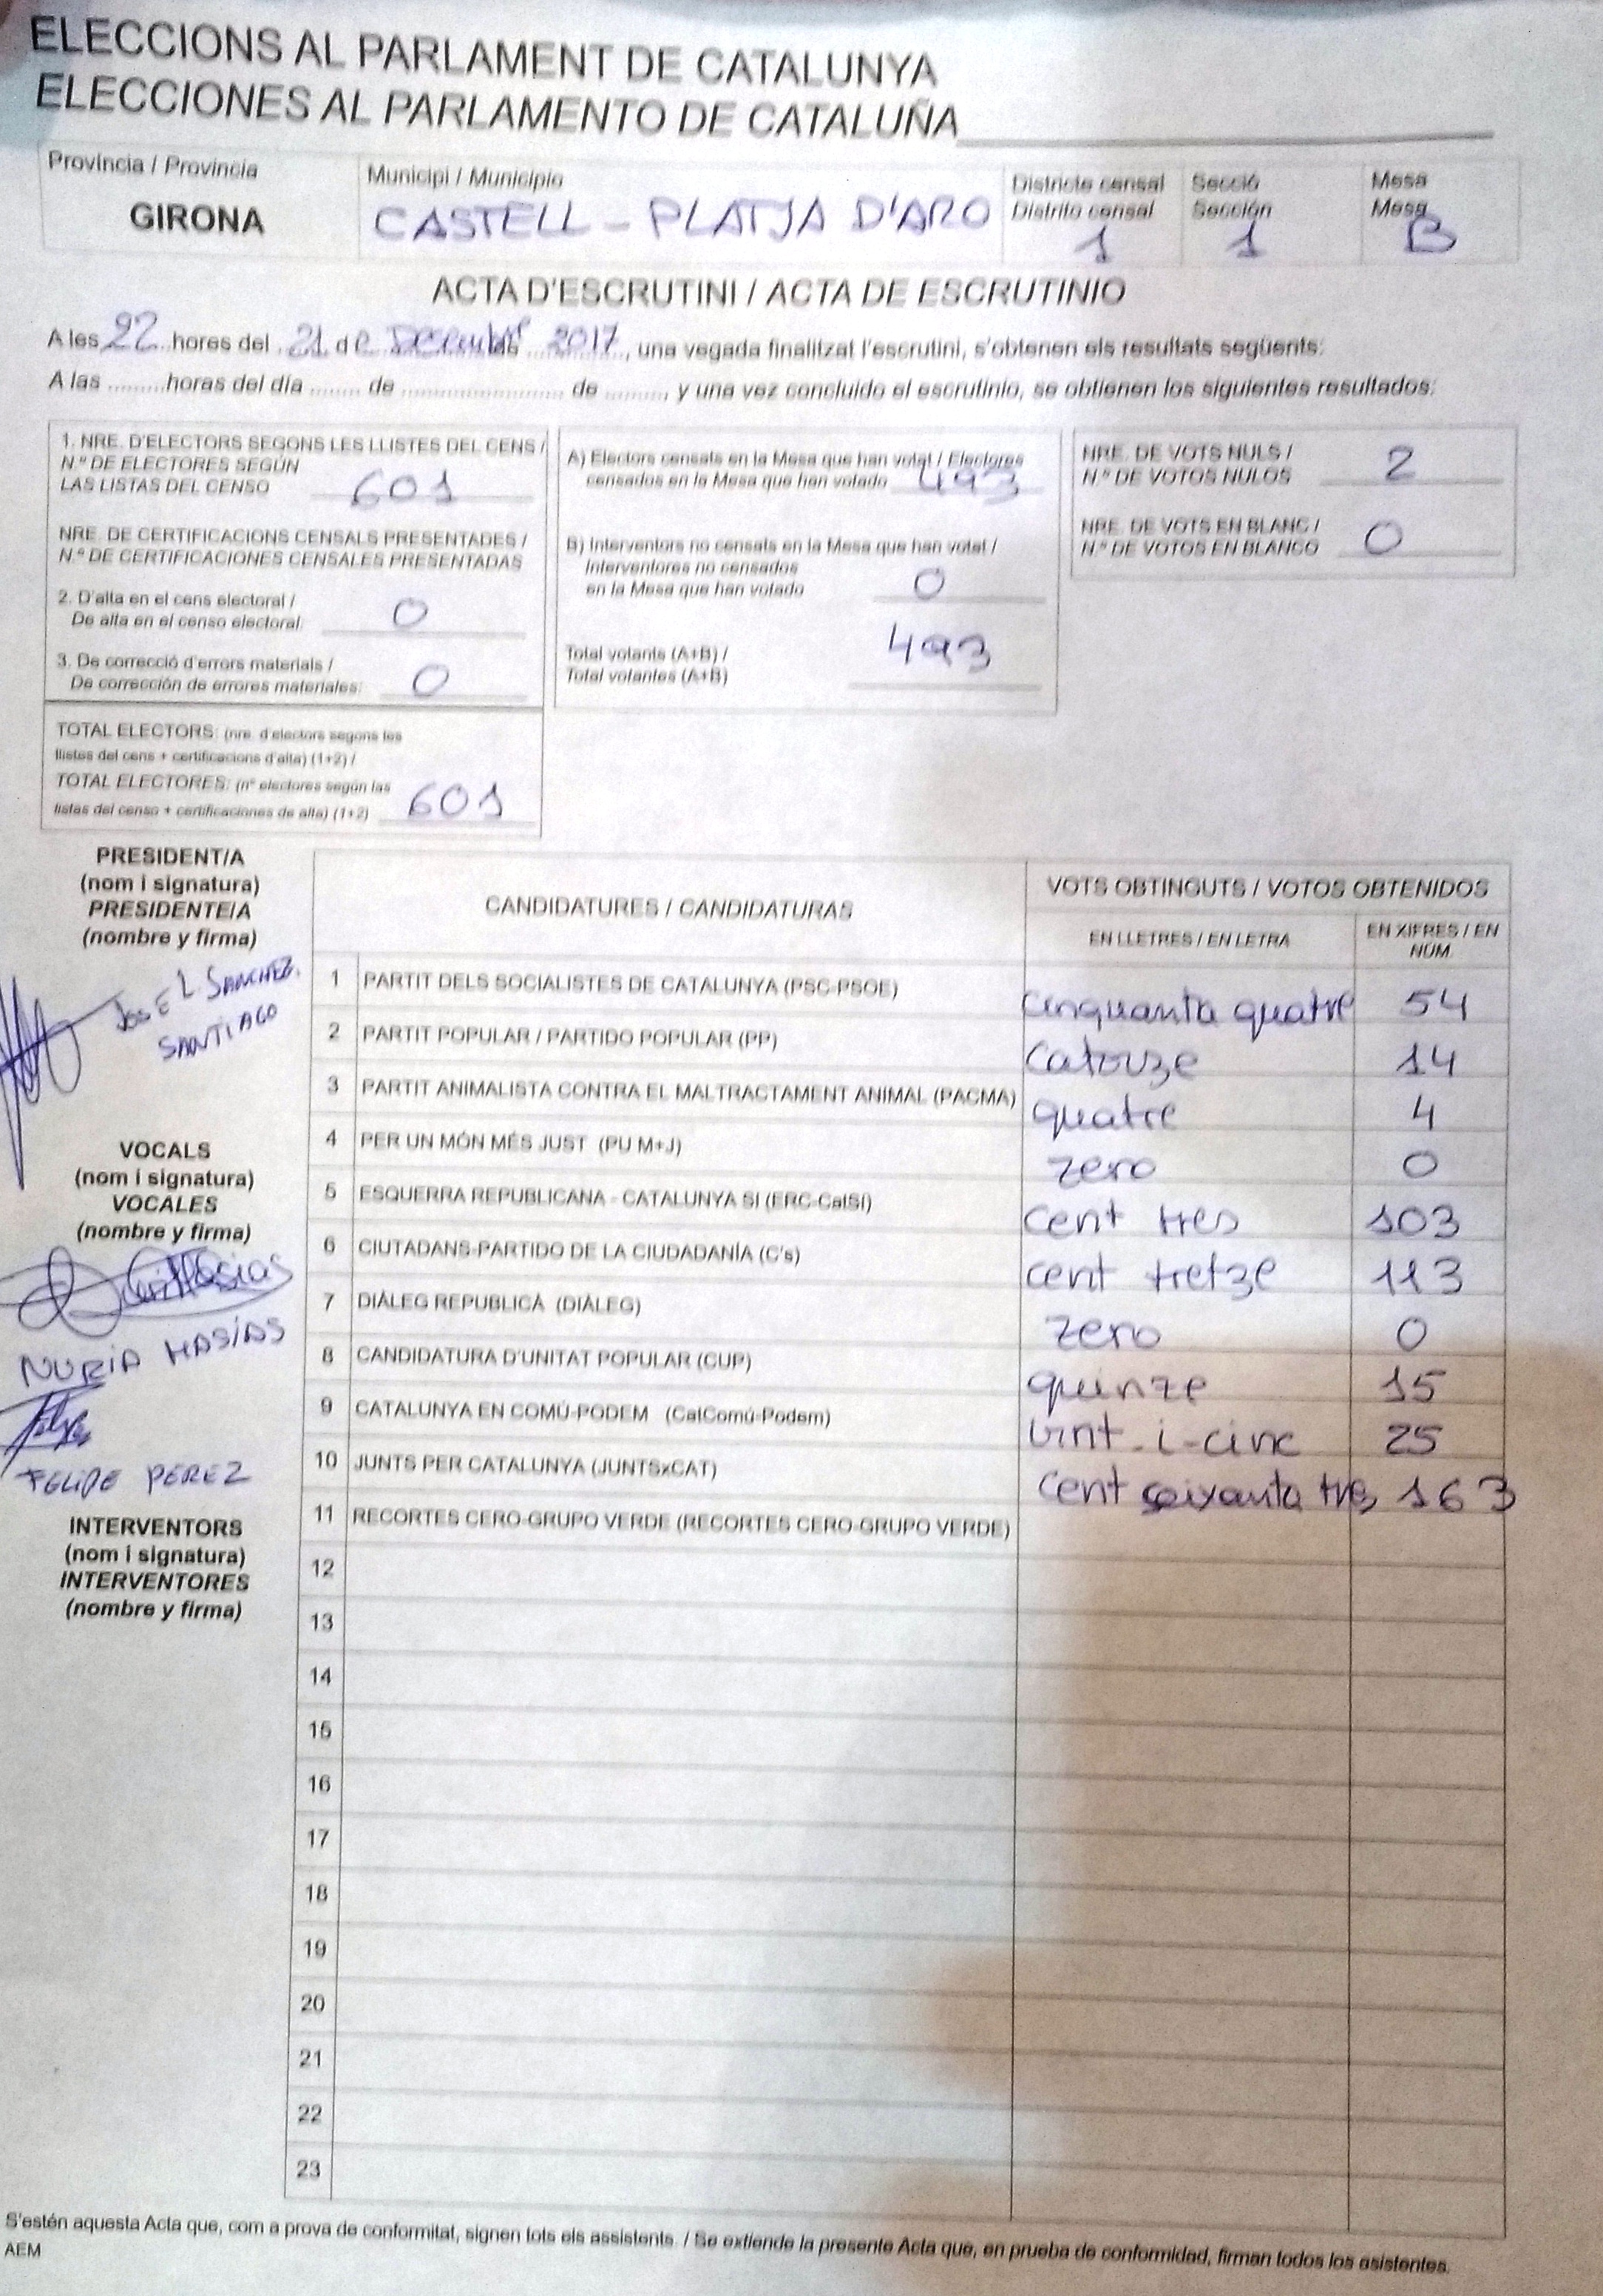 ELECCIONS AL PARLAMENT DE CATALUNYA
ELECCIONES AL PARLAMENTO DE CATALUÑA
Província / Provincia Municipi / Municipio Districte censal Secció Mesa
Distrito censal Sección Mesa
GIRONA CASTELL - PLATJA D'ARO 1 1 B
ACTA D'ESCRUTINI / ACTA DE ESCRUTINIO
A les 22 hores del 21 de Decembre 2017, una vegada finalitzat l'escrutini, s'obtenen els resultats següents:
A las ......... horas del día ........ de ......................... de ........., y una vez concluido el escrutinio, se obtienen los siguientes resultados:
1. NRE. D'ELECTORS SEGONS LES LLISTES DEL CENS /
N.º DE ELECTORES SEGÚN
LAS LISTAS DEL CENSO 601
NRE. DE CERTIFICACIONS CENSALS PRESENTADES /
N.º DE CERTIFICACIONES CENSALES PRESENTADAS
2. D'alta en el cens electoral /
De alta en el censo electoral: 0
3. De correcció d'errors materials /
De corrección de errores materiales: 0
TOTAL ELECTORS: (nre. d'electors segons les
llistes del cens + certificacions d'alta) (1+2) /
TOTAL ELECTORES: (nº electores según las
listas del censo + certificaciones de alta) (1+2) 601
A) Electors censats en la Mesa que han votat / Electores
censados en la Mesa que han votado 493
B) Interventors no censats en la Mesa que han votat /
Interventores no censados
en la Mesa que han votado 0
Total votants (A+B) /
Total votantes (A+B) 493
NRE. DE VOTS NULS /
N.º DE VOTOS NULOS 2
NRE. DE VOTS EN BLANC /
N.º DE VOTOS EN BLANCO 0
PRESIDENT/A
(nom i signatura)
PRESIDENTE/A
(nombre y firma)
JOSE L. SANCHEZ
SANTIAGO
VOCALS
(nom i signatura)
VOCALES
(nombre y firma)
NURIA MASÍAS
FELIPE PEREZ
INTERVENTORS
(nom i signatura)
INTERVENTORES
(nombre y firma)
CANDIDATURES / CANDIDATURAS VOTS OBTINGUTS / VOTOS OBTENIDOS
EN LLETRES / EN LETRA EN XIFRES / EN
NÚM.
1 PARTIT DELS SOCIALISTES DE CATALUNYA (PSC-PSOE) cinquanta quatre 54
2 PARTIT POPULAR / PARTIDO POPULAR (PP) catorze 14
3 PARTIT ANIMALISTA CONTRA EL MALTRACTAMENT ANIMAL (PACMA) quatre 4
4 PER UN MÓN MÉS JUST (PU M+J) zero 0
5 ESQUERRA REPUBLICANA - CATALUNYA SÍ (ERC-CatSí) cent tres 103
6 CIUTADANS-PARTIDO DE LA CIUDADANÍA (C's) cent tretze 113
7 DIÀLEG REPUBLICÀ (DIÀLEG) zero 0
8 CANDIDATURA D'UNITAT POPULAR (CUP) quinze 15
9 CATALUNYA EN COMÚ-PODEM (CatComú-Podem) vint-i-cinc 25
10 JUNTS PER CATALUNYA (JUNTSxCAT) cent seixanta tres 163
11 RECORTES CERO-GRUPO VERDE (RECORTES CERO-GRUPO VERDE)
12
13
14
15
16
17
18
19
20
21
22
23
S'estén aquesta Acta que, com a prova de conformitat, signen tots els assistents. / Se extiende la presente Acta que, en prueba de conformidad, firman todos los asistentes.
AEM